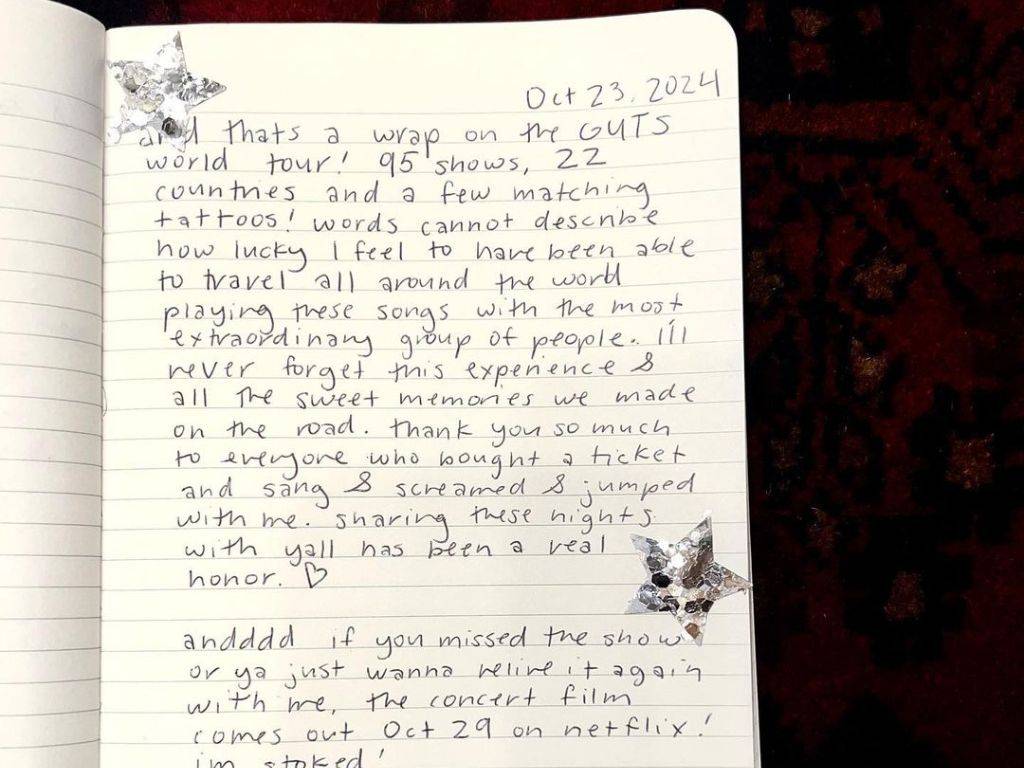 Oct 23, 2024
and thats a wrap on the GUTS
world tour! 95 shows, 22
countries and a few matching
tattoos! words cannot describe
how lucky I feel to have been able
to travel all around the world
playing these songs with the most
extraordinary group of people. I'll
never forget this experience &
all the sweet memories we made
on the road. thank you so much
to everyone who bought a ticket
and sang & screamed & jumped
with me. sharing these nights
with yall has been a real
honor. ♡
andddd if you missed the show
or ya just wanna relive it again
with me, the concert film
comes out Oct 29 on netflix!
im stoked!